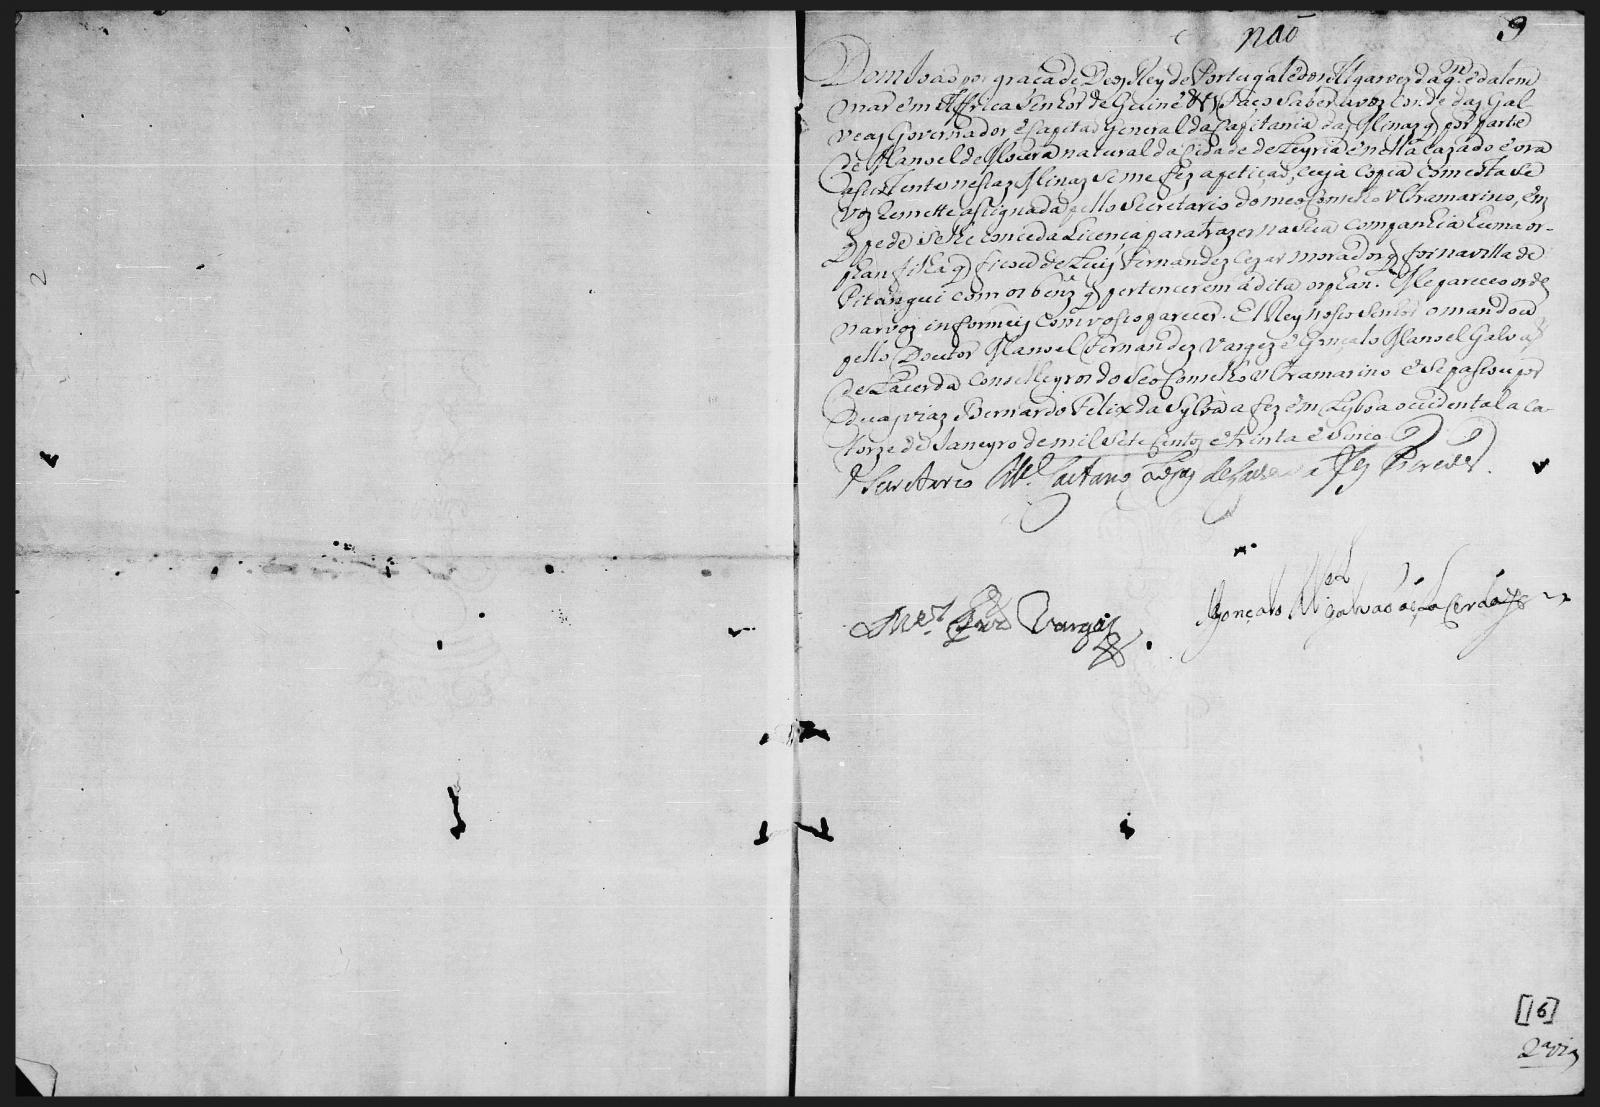 não
9
Dom João por graça de Deos Rey de Portugal e dos Algarves daq.m e dalem
mar em Affrica Senhor de Guine &c Faço saber a vos Conde das Gal-
veas Governador e Capitaõ General da Capitania das Minas q por parte
de Manoel de Moura natural da Cidade de Leyria e nella cazado e ora
asistente nestas Minas se me fez a petiçaõ, cuja copia com esta se
vos remette asignada pello Secretario do meo Conselho Ultramarino, em
q pede se lhe conceda Licença para trazer na sua companhia huma or-
phan filha q ficou de Luis Fernandes Cezar morador q foi na villa de
Pitangui com os bens q pertencerem á dita orphan. Me pareceo orde
narvos informeis com vosso parecer. El Rey nosso Senhor o mandou
pello Doutor Manoel Fernandes Varges e Gonçalo Manoel Galvaõ
de Lacerda Conselheyros do seo Conselho Ultramarino e se passou por
duas vias Bernardo Felix da Sylva a fez em Lisboa occidental a ca-
torze de Janeyro de mil sete centos e trinta e sinco.
O Secretario M.el Caetano Lopes de Lavre a fez escrever.
M.el Frz Vargas
Gonçalo M.el Galvaõ de Lacerda
2
[16]
2ª via